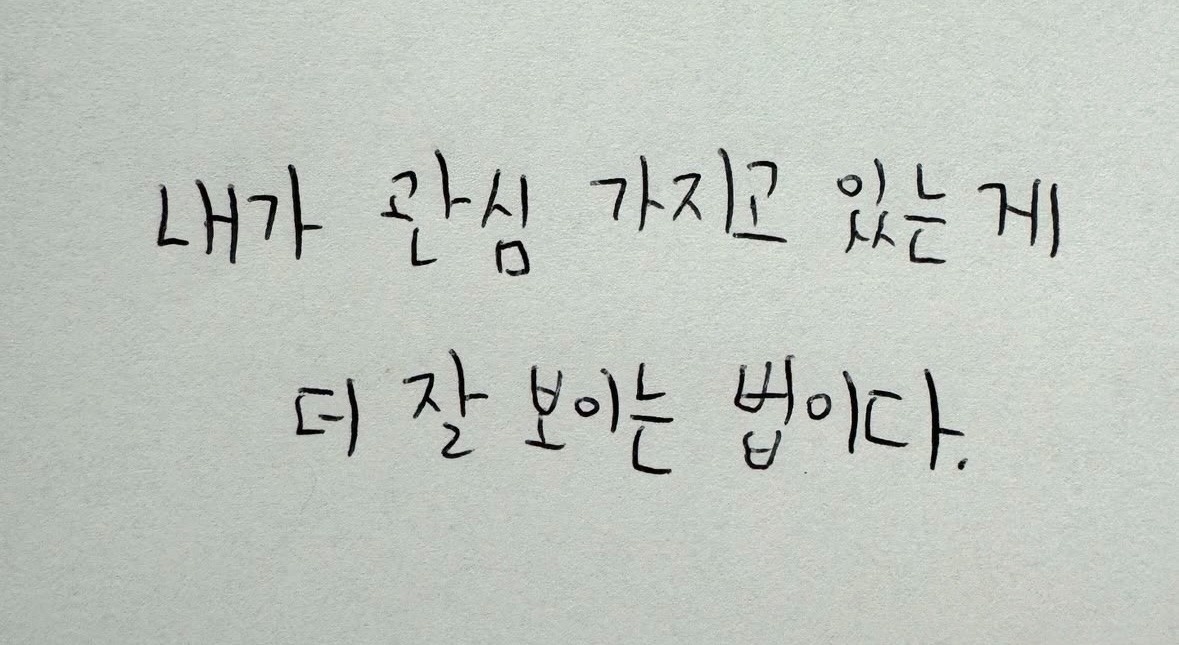 내가 관심 가지고 있는 게
더 잘 보이는 법이다.